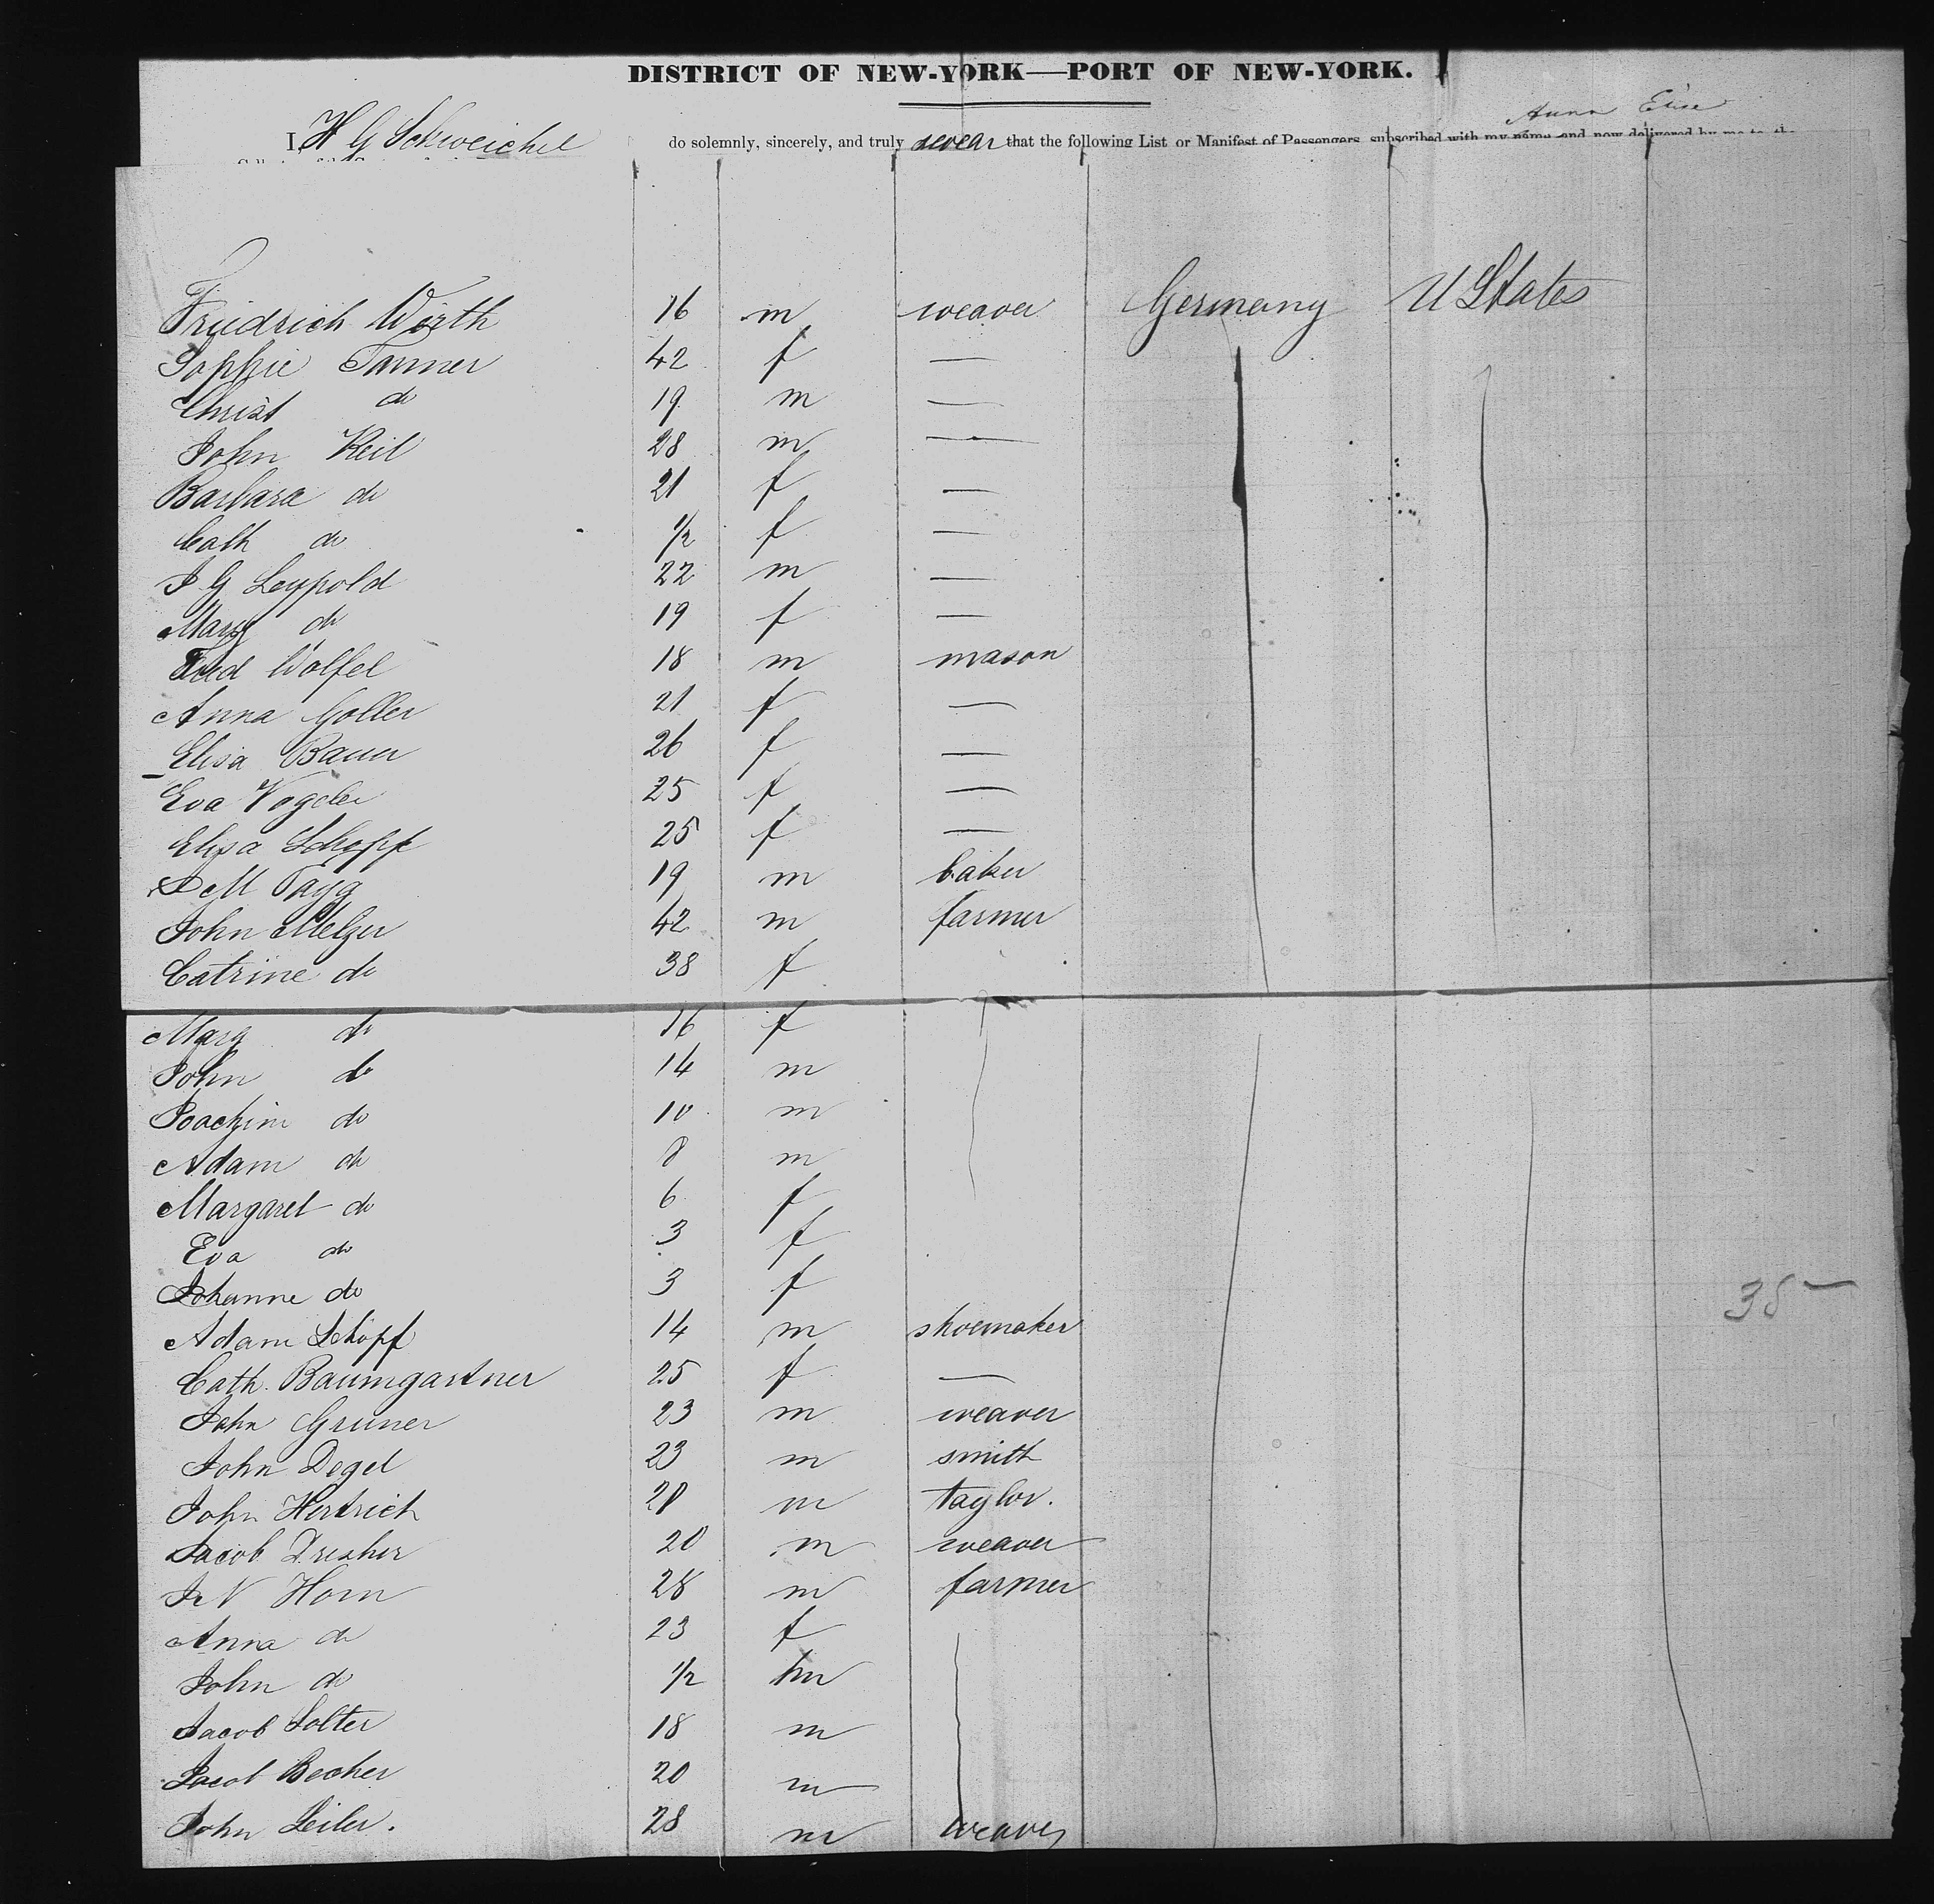 DISTRICT OF NEW-YORK—PORT OF NEW-YORK.
Anna Elise
I, H G Schweichel do solemnly, sincerely, and truly swear that the following List or Manifest of Passengers, subscribed with my name and now delivered by me to the
Friedrich Wirth 16 m weaver Germany U States
Sophie Tanner 42 f —
Christ do 19 m —
John Keil 28 m —
Barbara do 21 f —
Cath do 1/2 f —
J G Leypold 22 m —
Marg do 19 f —
Fried Wölfel 18 m mason
Anna Goller 21 f —
Elisa Bauer 26 f —
Eva Vogeler 25 f —
Elisa Schopf 25 f —
J M 19 m baker
John Melzer 42 m farmer
Catrine do 38 f
Marg do 16 f
John do 14 m
Joachim do 10 m
Adam do 8 m
Margaret do 6 f
Eva do 3 f
Johanne do 3 f
35 —
Adam Schöpf 14 m shoemaker
Cath. Baumgartner 25 f —
John Gruner 23 m weaver
John Degel 23 m smith
John Hertrich 28 m taylor.
Jacob Dresher 20 m weaver
J N Horn 28 m farmer
Anna do 23 f
John do 1/2 m
Jacob Solter 18 m
Jacob Becher 20 m
John Seiler. 28 m weaver